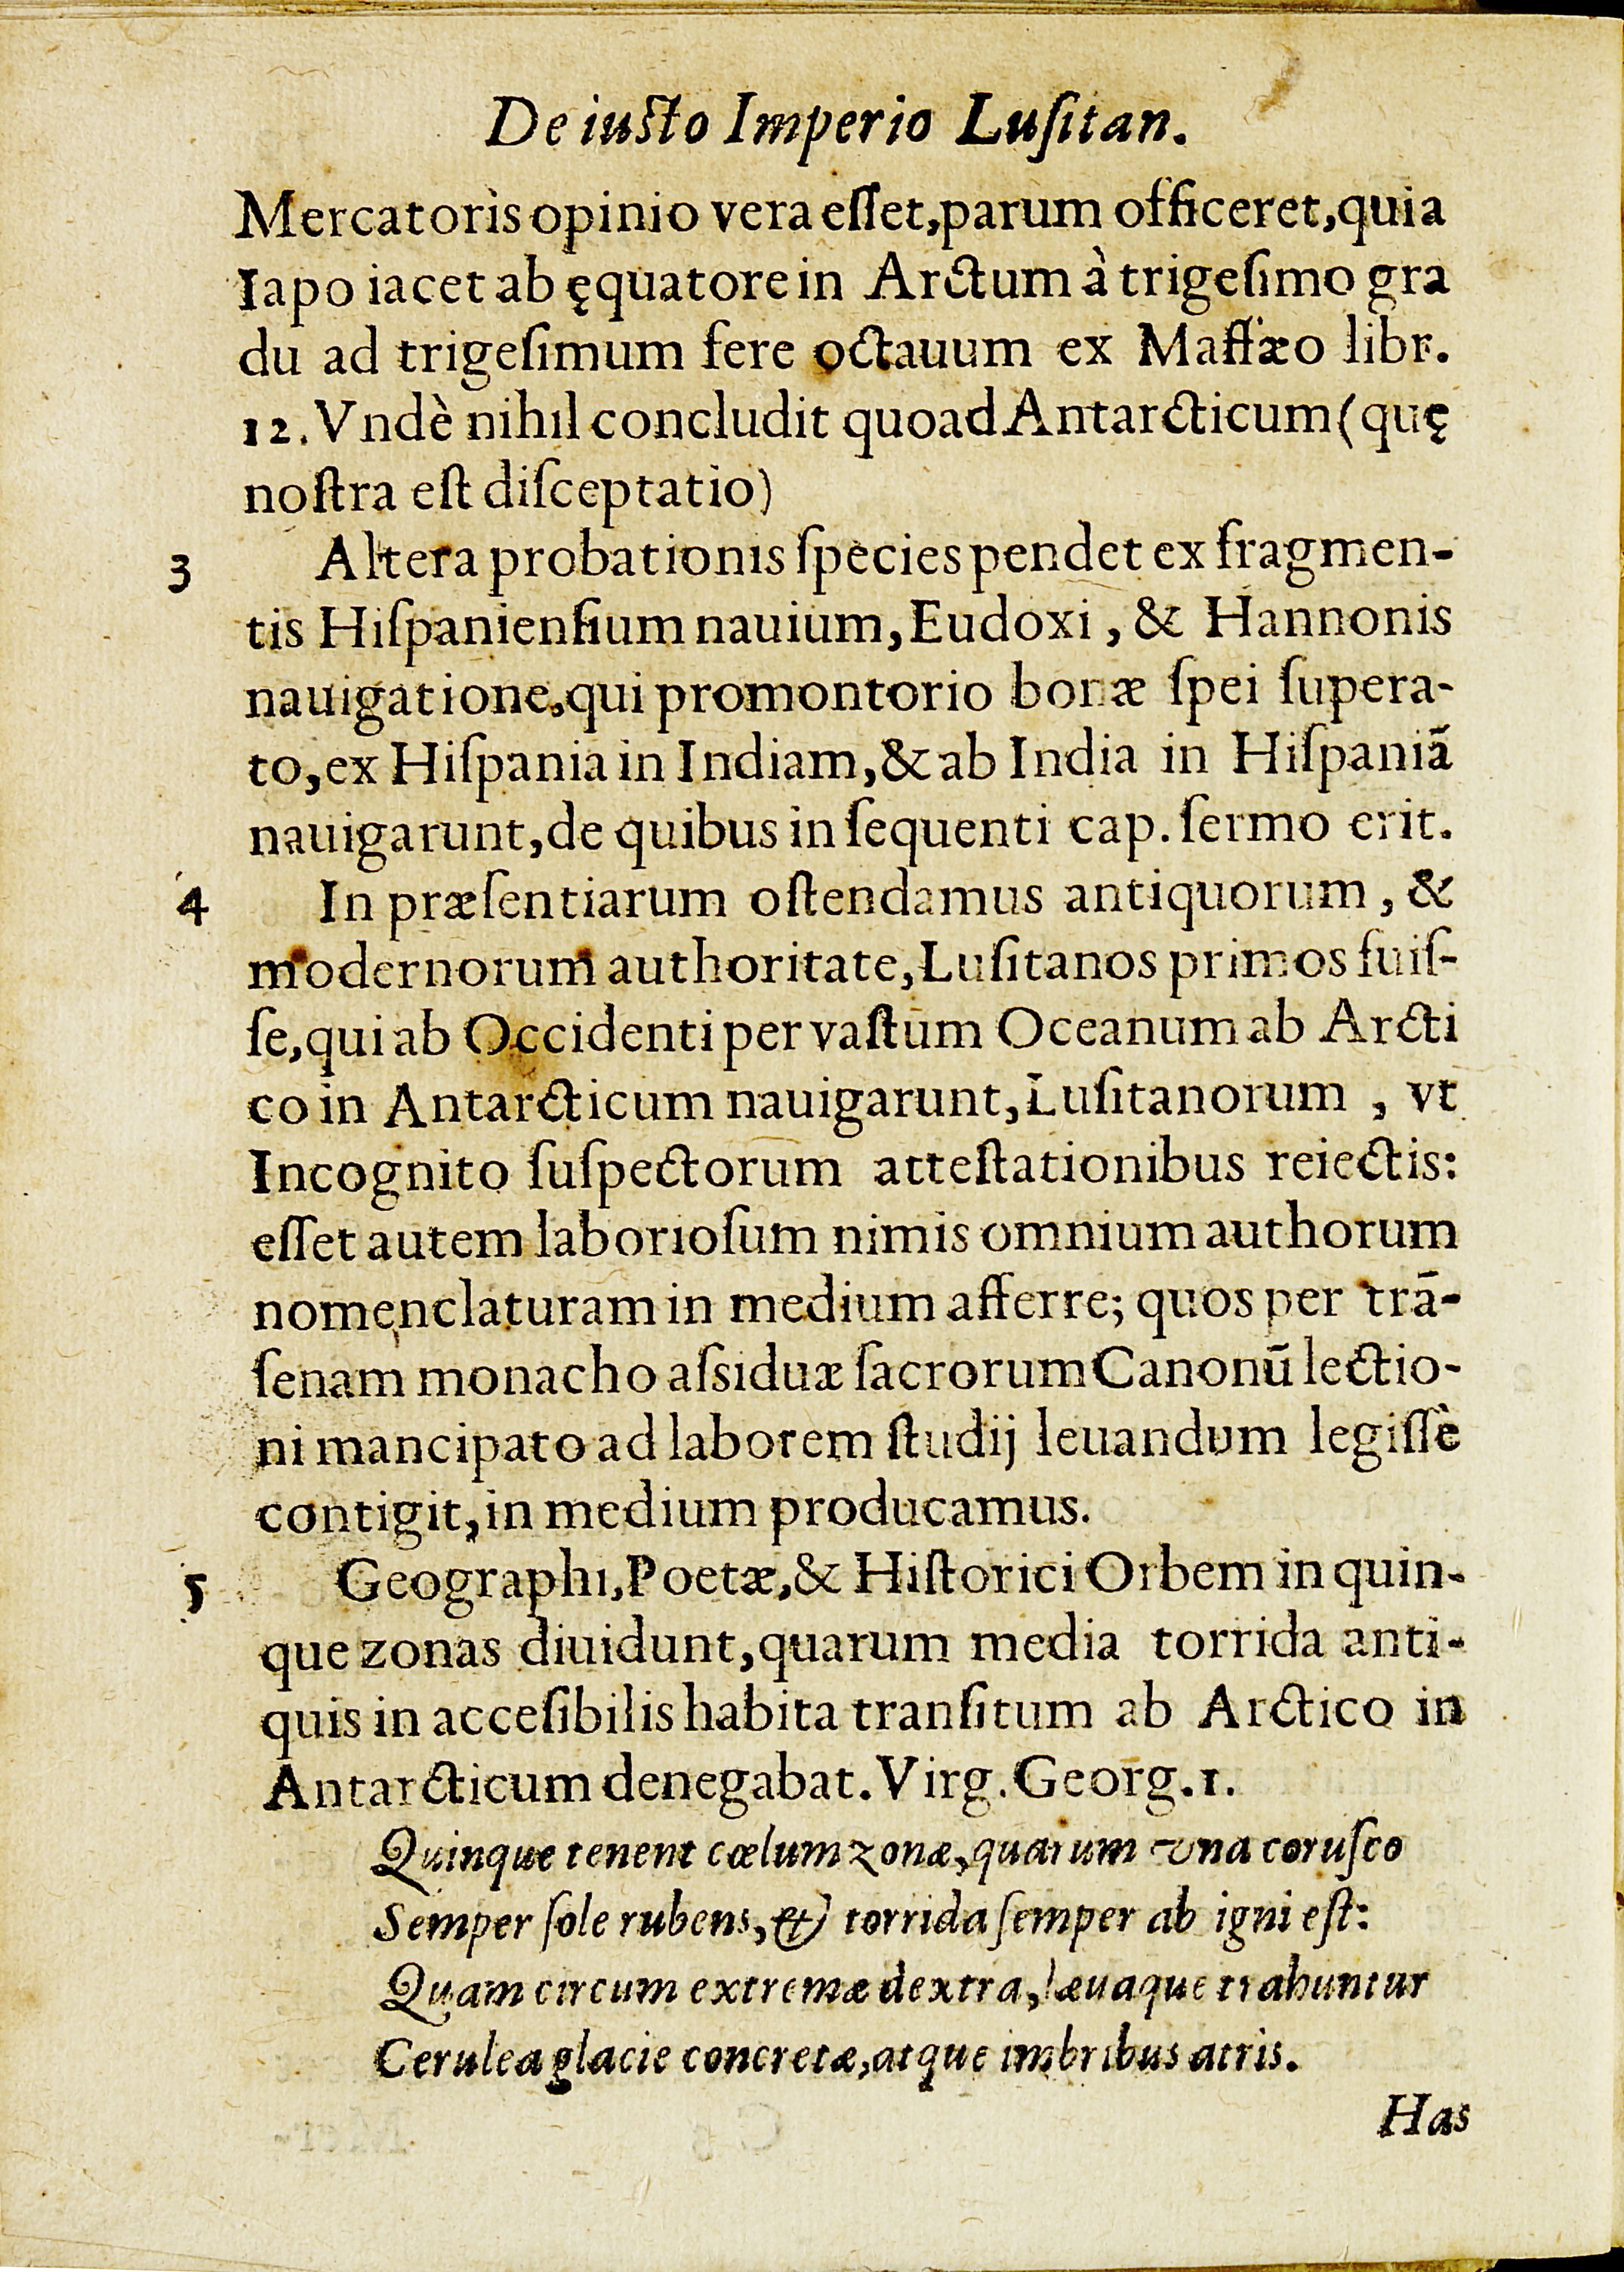 De iusto Imperio Lusitan.
Mercatoris opinio vera esset, parum officeret, quia
Iapo iacet ab ęquatore in Arctum à trigesimo gra
du ad trigesimum fere octauum ex Maffæo libr.
12. Vndè nihil concludit quoad Antarcticum (quę
nostra est disceptatio)
3 Altera probationis species pendet ex fragmen-
tis Hispaniensium nauium, Eudoxi, & Hannonis
nauigatione, qui promontorio bonæ spei supera-
to, ex Hispania in Indiam, & ab India in Hispaniã
nauigarunt, de quibus in sequenti cap. sermo erit.
4 In præsentiarum ostendamus antiquorum, &
modernorum authoritate, Lusitanos primos fuis-
se, qui ab Occidenti per vastum Oceanum ab Arcti
co in Antarcticum nauigarunt, Lusitanorum , vt
Incognito suspectorum attestationibus reiectis:
esset autem laboriosum nimis omnium authorum
nomenclaturam in medium afferre; quos per trã-
senam monacho assiduæ sacrorum Canonũ lectio-
ni mancipato ad laborem studij leuandum legissè
contigit, in medium producamus.
5 Geographi, Poetæ, & Historici Orbem in quin-
que zonas diuidunt, quarum media torrida anti-
quis in accesibilis habita transitum ab Arctico in
Antarcticum denegabat. Virg. Georg. 1.
Quinque tenent cœlum zonæ, quarum vna corusco
Semper sole rubens, & torrida semper ab igni est:
Quam circum extremæ dextra, læuaque trahuntur
Cerulea glacie concretæ, atque imbribus atris.
Has